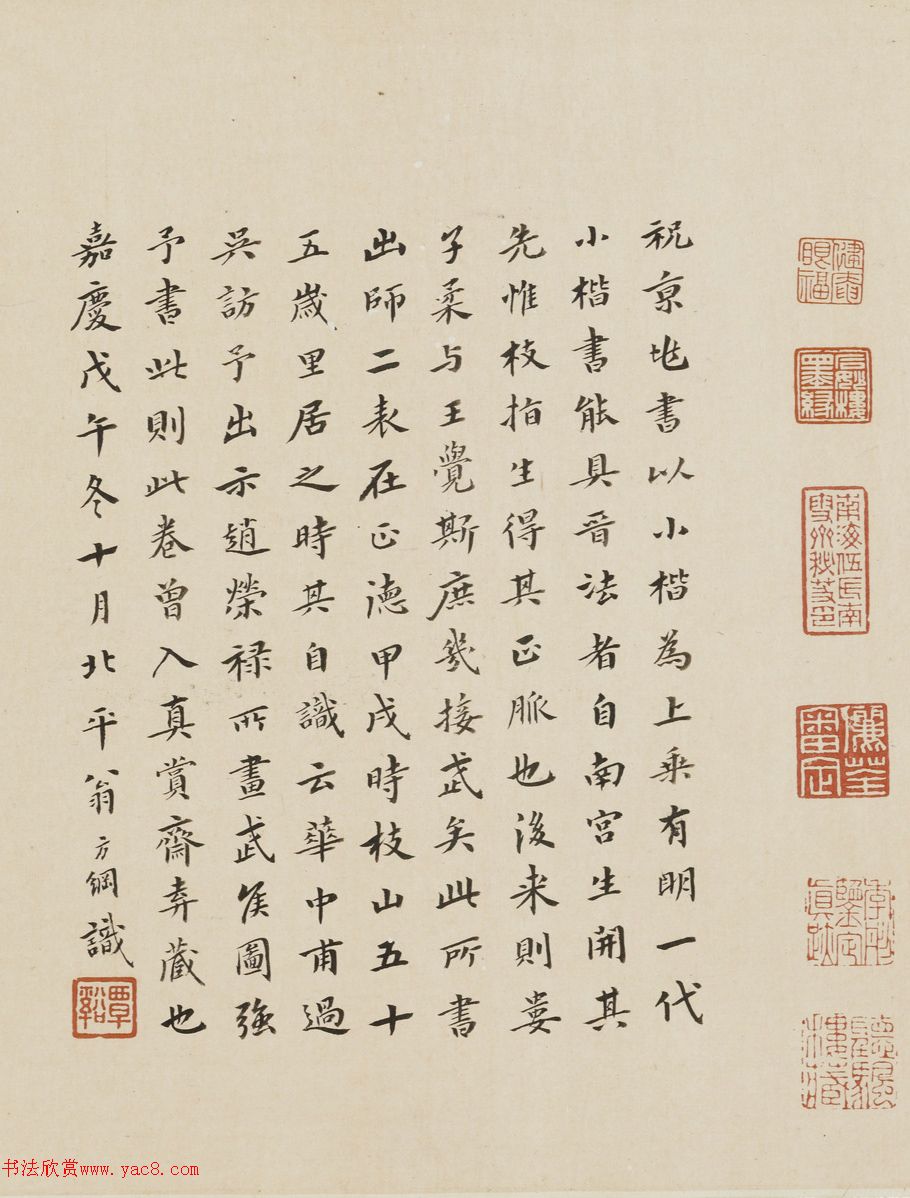 祝京兆書以小楷為上乘有明一代
小楷書能具晉法者自南宮生開其
先惟枝指生得其正脈也後來則婁
子柔与王覺斯庶幾接武矣此所書
出師二表在正德甲戌時枝山五十
五歲里居之時其自識云華中甫過
吳訪予出示趙榮祿所畫武侯圖強
予書此則此卷曾入真賞齋弆藏也
嘉慶戊午冬十月北平翁方綱識
覃谿
眼福
墨緣
南海伍氏南
審定
真跡
书法欣赏www.yac8.com